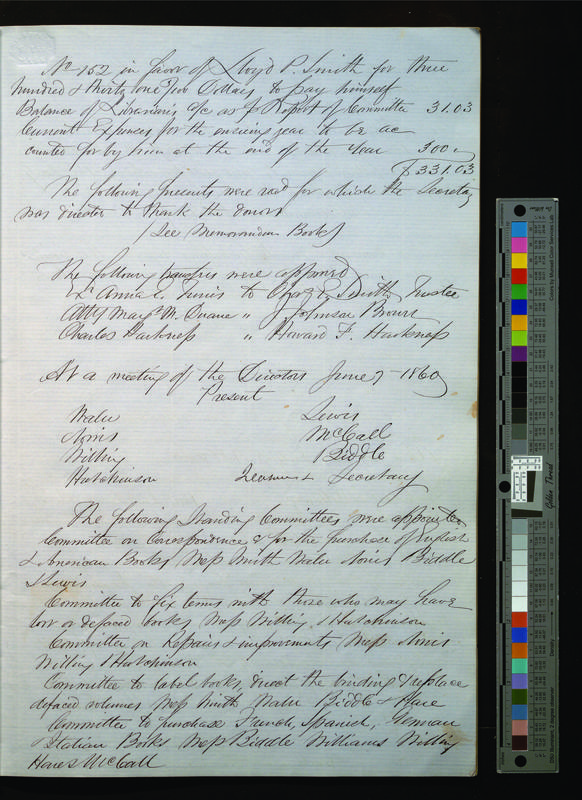 No 152 in favor of Lloyd P. Smith for three
hundred & thirty one 03/100 Dollars to pay himself
Balance of Librarian's a/c as p Report of Committee 31.03
Current Expenses for the ensuing year to be ac
counted for by him at the end of the Year 300 "
$331.03
The following presents were read for which the Secretary
was directed to thank the donors
(See Memorandum Book)
The following transfers were approved
Exr Anna C. Tunis to Chas E. Smith Trustee
Atty Mary M. Duane " Johnson Brown
Charles Harkness " Havard F. Harkness
At a meeting of the Directors June 7 - 1860
Present
Waln Lewis
Norris McCall
Willing Biddle
Hutchinson Treasurer & Secretary
The following Standing Committees were appointed
Committee on Correspondence & for the purchase of English
& American Books Mess Smith Waln Norris Biddle
& Lewis
Committee to fix terms with those who may have
lost or defaced books Mess Willing & Hutchinson
Committee on Repairs & improvements Mess Norris
Willing & Hutchinson
Committee to label books, direct the binding & replace
defaced volumes Mess Smith Waln Biddle & Hare
Committee to purchase French, Spanish, German
& Italian Books Mess Biddle Williams Willing
Hare & McCall